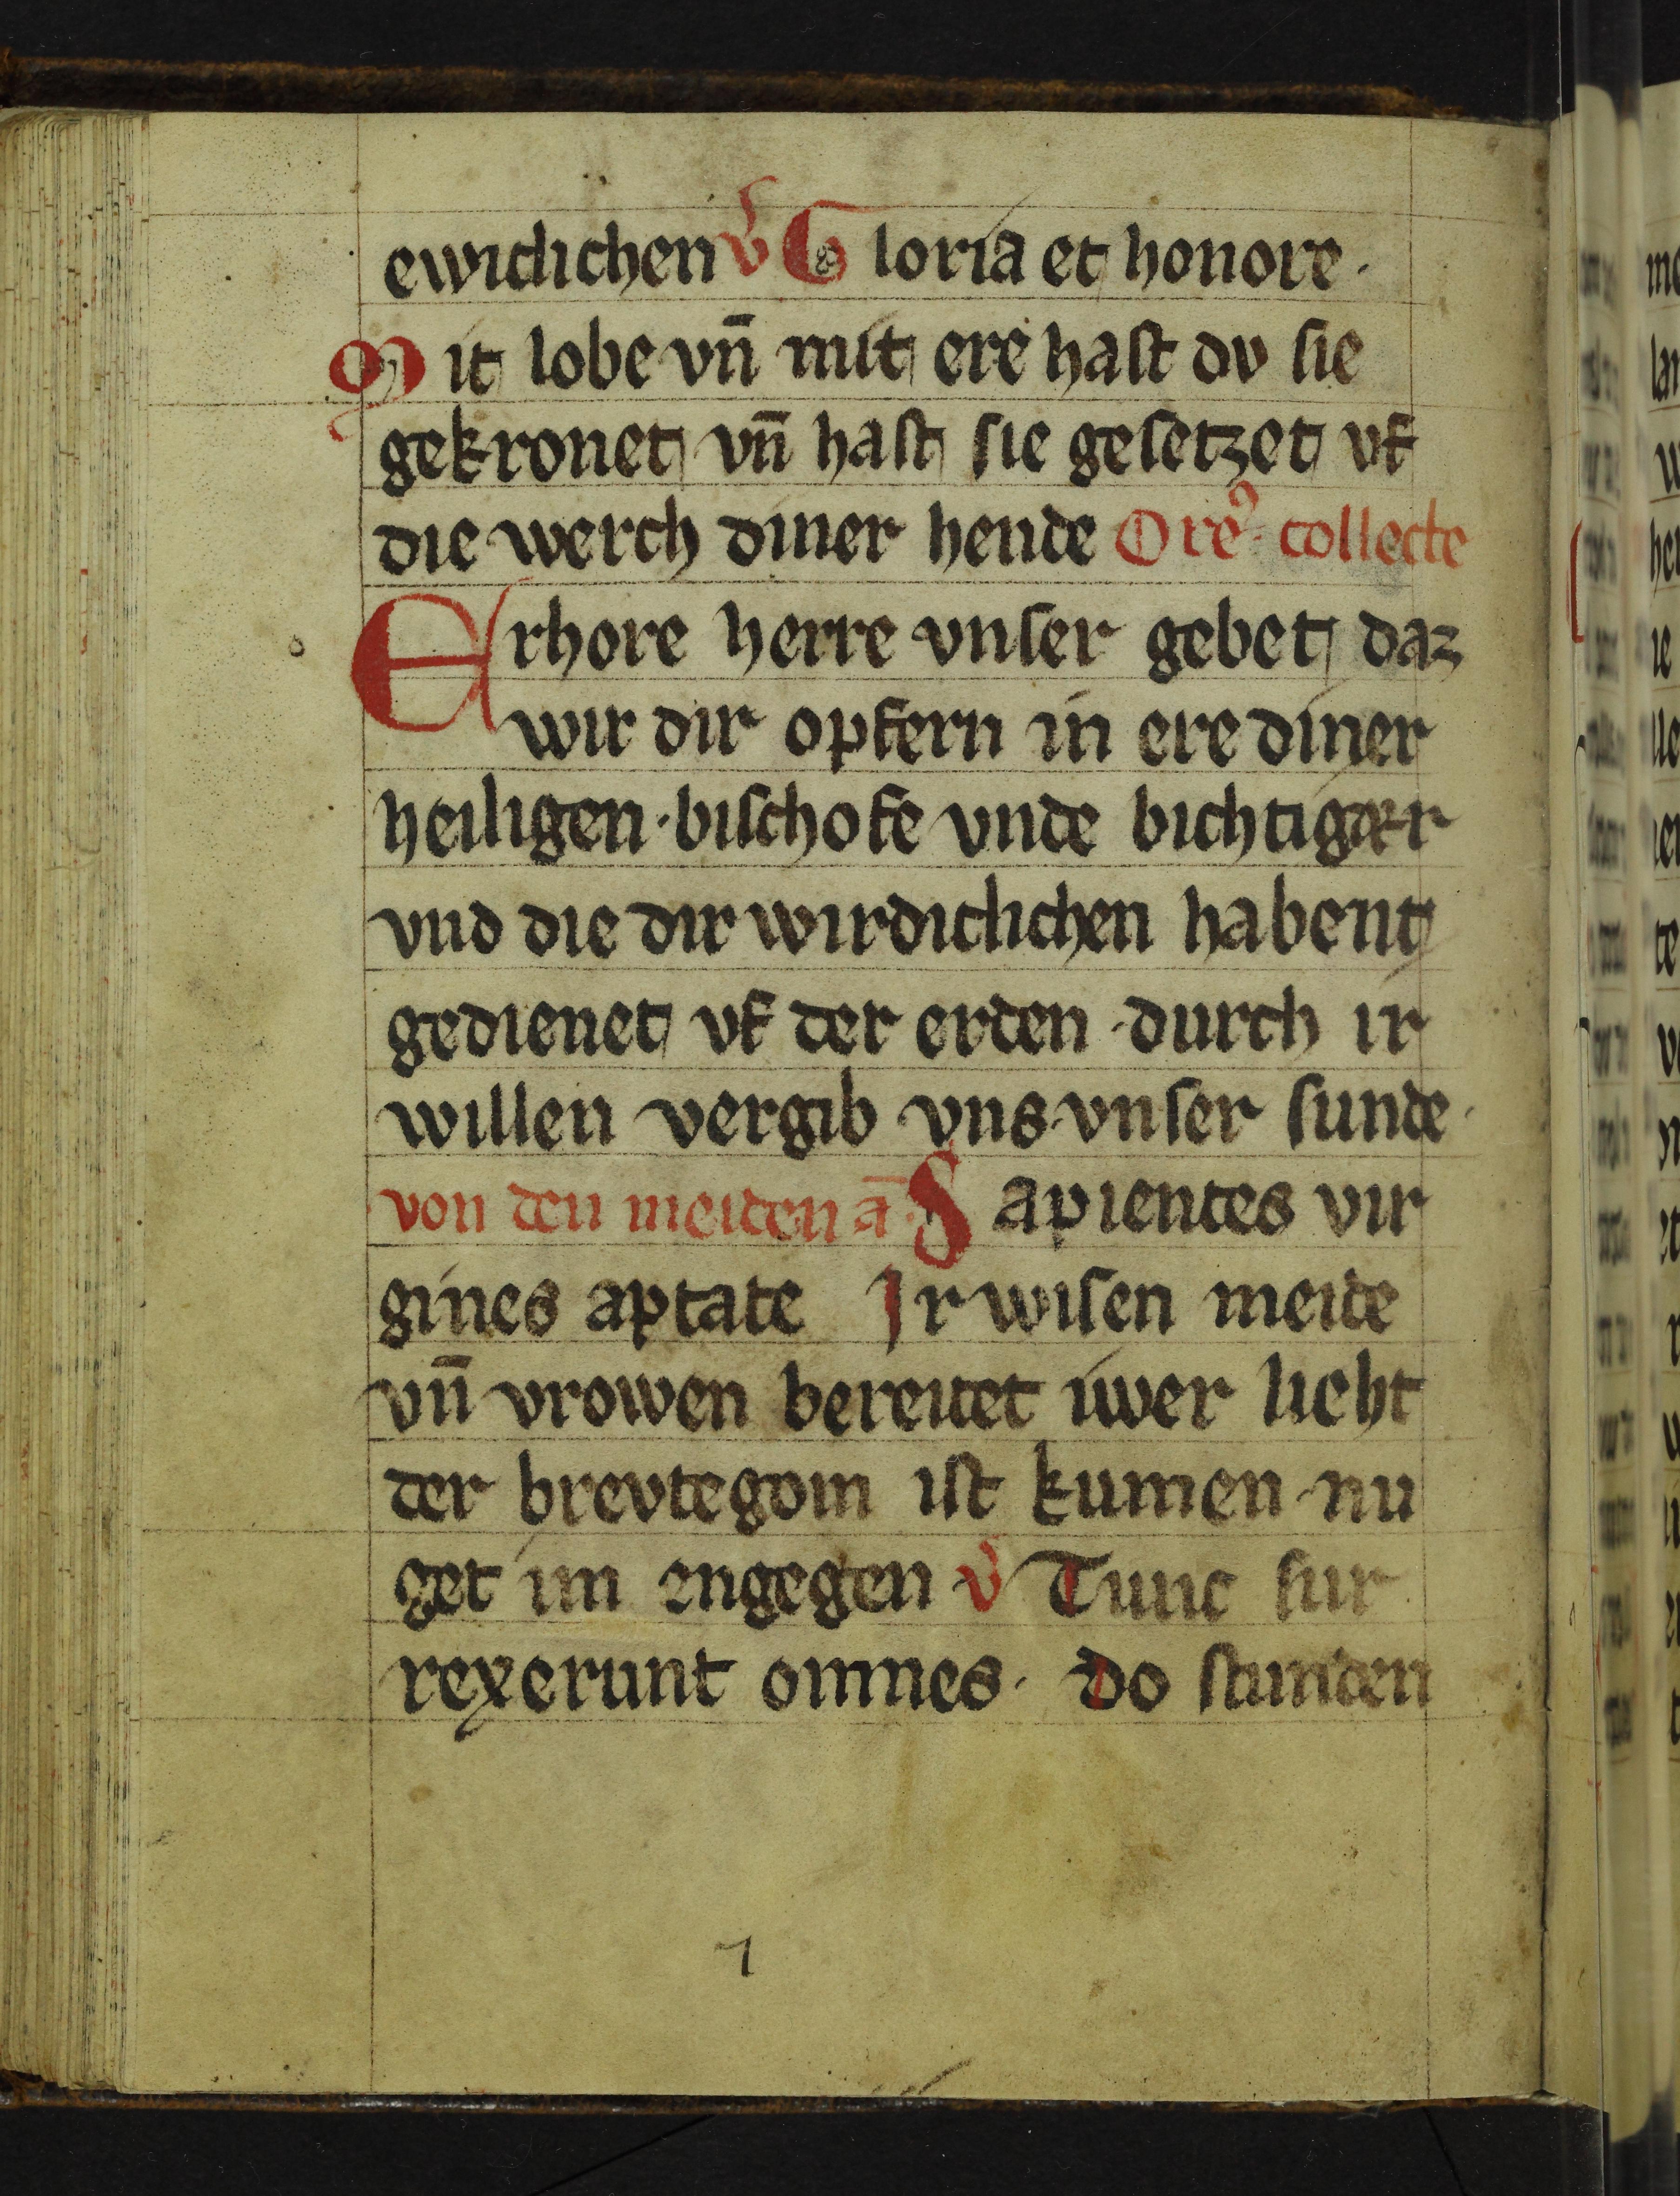 ewiclichen v̉ Gloria et honore.
Mit lobe vn̄ mit ere hast dv sie
gekronet vn̄ hast sie gesetzet vf
die werch diner hende Ore᷒. collecte
Erhore herre vnser gebet daz
wir dir opfern in ere diner
heiligen. bischofe vnde bichtigær
vnd die dir wirdiclichen habent
gedienet vf der erden. durch ir
willen vergib vns vnser sunde.
von den meiden ā. Sapientes vir
gines aptate Ir wisen meide
vn̄ vrowen bereitet uwer lieht
der brevtegom ist kumen. nu
get im engegen v̉ Tunc sur
rexerunt omnes. do stunden
7